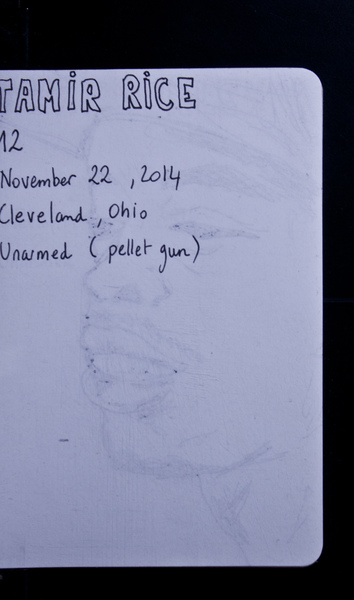 TAMIR RICE
12
November 22 , 2014
Cleveland , Ohio
Unarmed ( pellet gun )